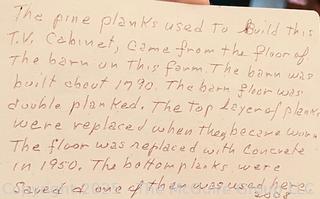 The pine planks used to Build this
T.V. Cabinet, came from the floor of
The barn on This farm. The barn was
built about 1790. The barn floor was
double planked. The top layer of planks
were replaced when they became worn.
The floor was replaced with Concrete
in 1950. The bottom planks were
Saved & one of them was used here
2008